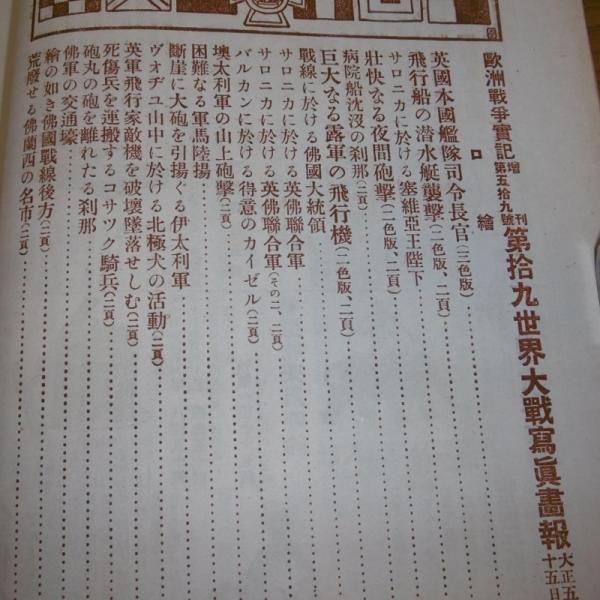 歐洲戰爭實記 增刊 第五拾九號 第拾九世界大戰寫眞畫報 大正五 十五日
口繪
英國本國艦隊司令長官(三色版)
飛行船の潜水艇襲擊(二色版、二頁)
サロニカに於ける塞維亞王陛下
壯快なる夜間砲擊(二色版、二頁)
病院船沈沒の刹那(二頁)
巨大なる露軍の飛行機(二色版、二頁)
戰線に於ける佛國大統領
サロニカに於ける英佛聯合軍
サロニカに於ける英佛聯合軍(その二、二頁)
バルカンに於ける得意のカイゼル(二頁)
墺太利軍の山上砲擊(二頁)
困難なる軍馬陸揚
斷崖に大砲を引揚ぐる伊太利軍
ヴォヂュ山中に於ける北極犬の活動(二頁)
英軍飛行家敵機を破壞墜落せしむ(二頁)
死傷兵を運搬するコサツク騎兵(二頁)
砲丸の砲を離れたる刹那
佛軍の交通壕
繪の如き佛國戰線後方(二頁)
荒廢せる佛蘭西の名市(二頁)